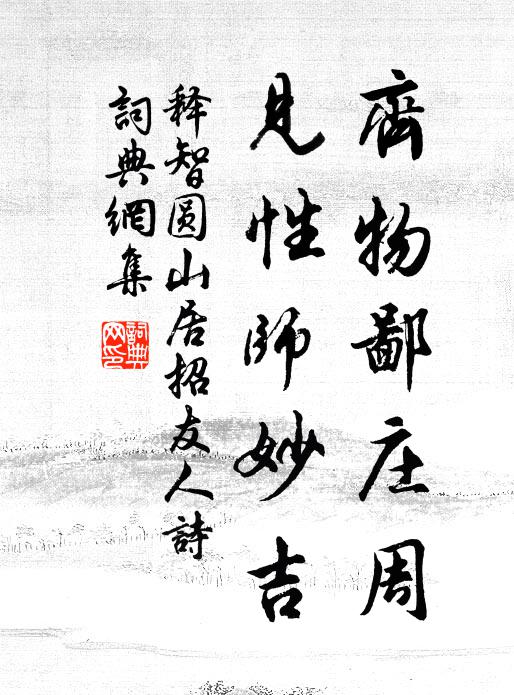 齊物鄙庄周
見性師妙吉
释智圆山居招友人詩
詞典網集
詞典
网印